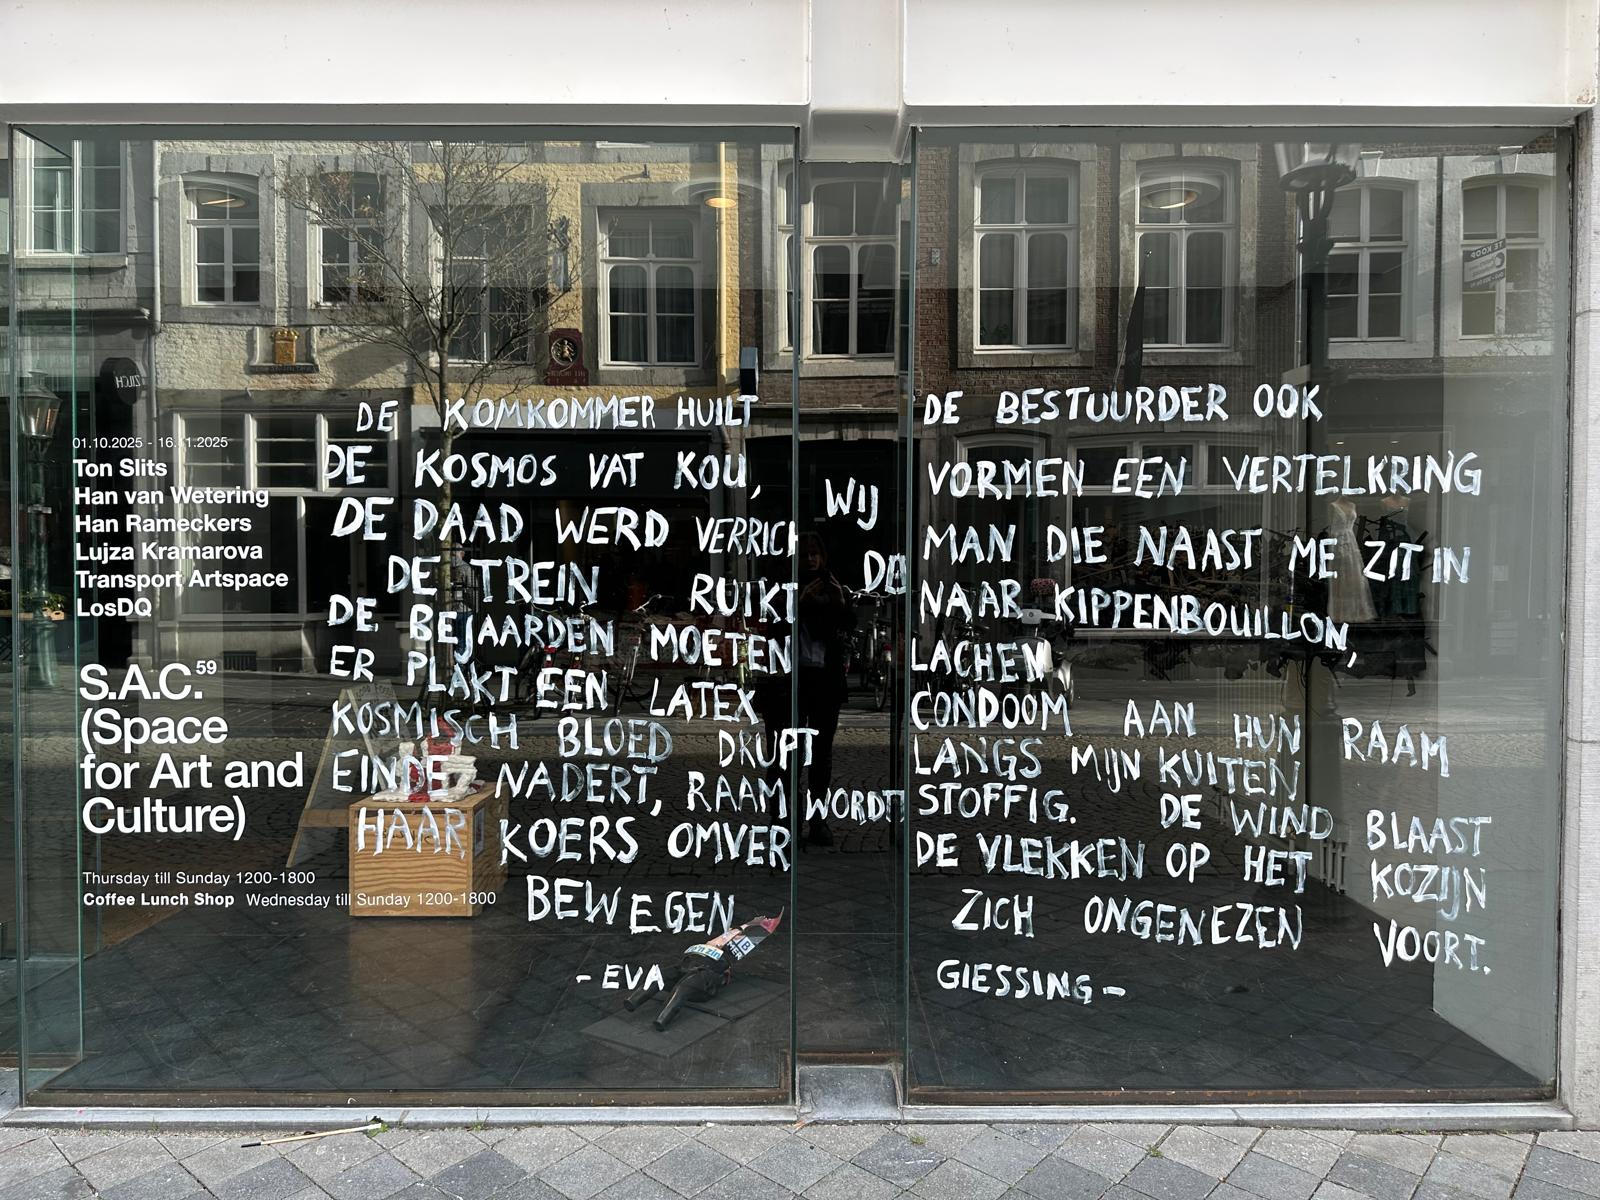 01.10.2025 - 16.11.2025
Ton Slits
Han van Wetering
Han Rameckers
Lujza Kramarova
Transport Artspace
LosDQ
S.A.C.59
(Space
for Art and
Culture)
Thursday till Sunday 1200-1800
Coffee Lunch Shop Wednesday till Sunday 1200-1800
DE KOMKOMMER HUILT DE BESTUURDER OOK
DE KOSMOS VAT KOU, WIJ VORMEN EEN VERTELKRING
DE DAAD WERD DE MAN DIE NAAST ME ZIT IN
DE TREIN RUIKT NAAR KIPPENBOUILLON,
DE BEJAARDEN MOETEN LACHEN
ER PLAKT EEN LATEX CONDOOM AAN HUN RAAM
KOSMISCH BLOED DRUPT LANGS MIJN KUITEN
EINDE NADERT, RAAM WORDT STOFFIG. DE WIND BLAAST
HAAR KOERS OMVER DE VLEKKEN OP HET KOZIJN
BEWEGEN ZICH ONGENEZEN VOORT.
- EVA GIESSING -
ZILCH
TE KOOP